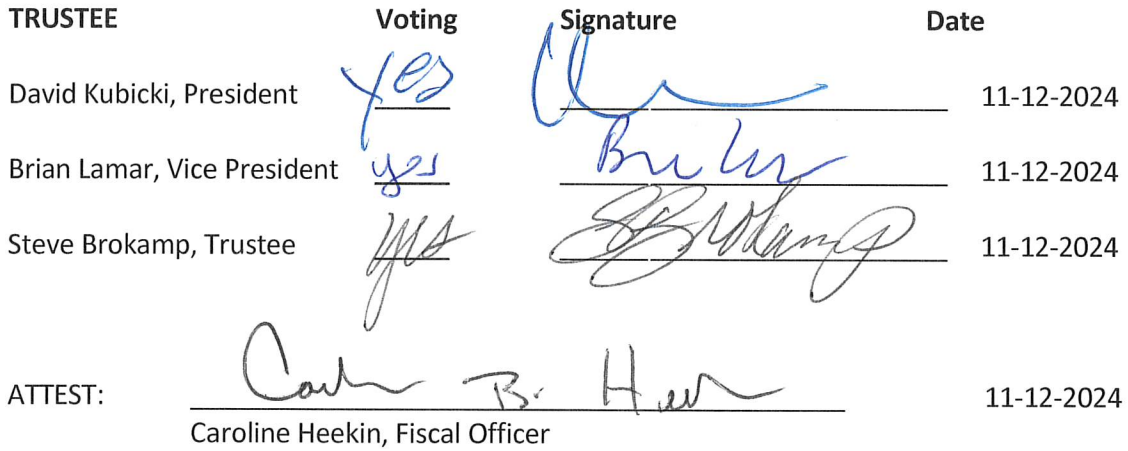 TRUSTEE Voting Signature Date
David Kubicki, President yes 11-12-2024
Brian Lamar, Vice President yes 11-12-2024
Steve Brokamp, Trustee yes SBrokamp 11-12-2024
ATTEST: 11-12-2024
Caroline Heekin, Fiscal Officer